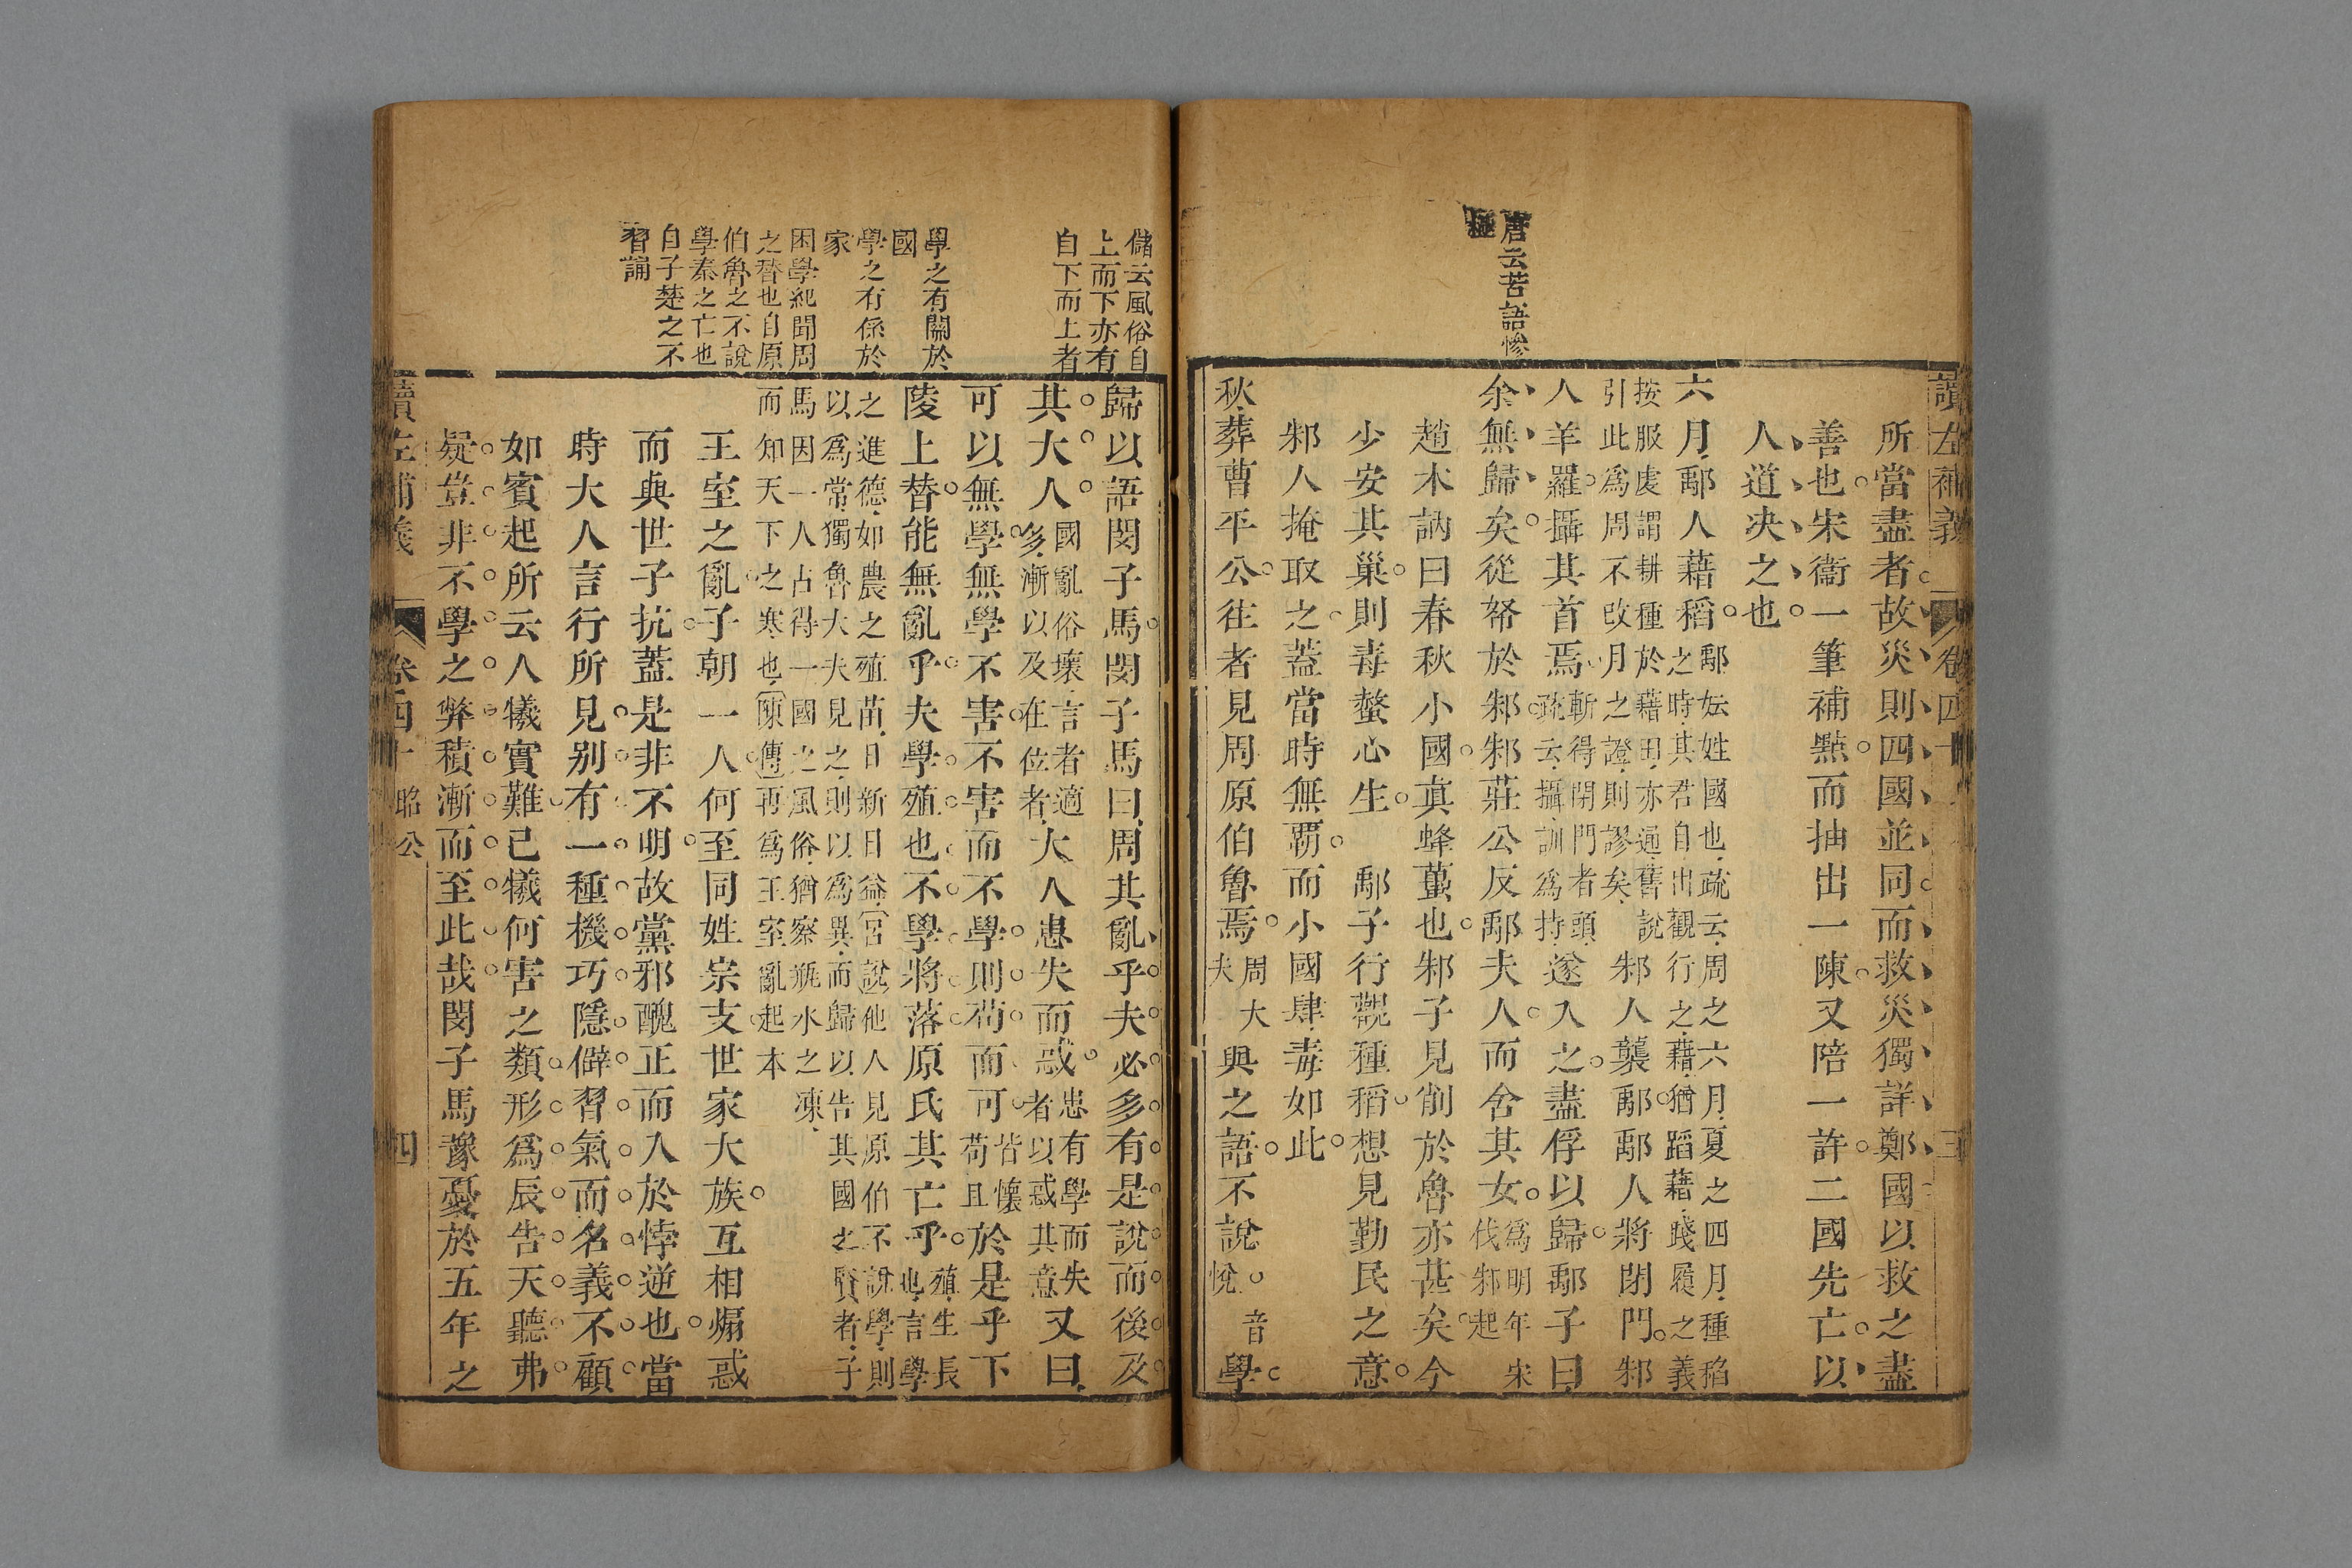 讀左補義 卷四十 三
唐云苦語慘
極
所當盡者故災則四國並同而救災獨詳鄭國以救之盡
善也宋衞一筆補㸃而抽出一陳又陪一許二國先亡以
人道决之也
六月鄅人藉稻鄅妘姓國也疏云周之六月夏之四月種稻
之時其君自出觀行之藉猶蹈藉踐履之義
按服虔謂耕種於藉田亦通舊說
引此爲周不改月之證則謬矣邾人襲鄅鄅人將閉門邾
人羊羅攝其首焉斬得閉門者頭
疏云攝訓爲持遂入之盡俘以歸鄅子曰
余無歸矣從帑於邾邾莊公反鄅夫人而舍其女爲明年宋
伐邾起
趙木訥曰春秋小國眞蜂蠆也邾子見削於魯亦甚矣今
少安其巢則毒螫心生 鄅子行觀種稻想見勤民之意
邾人掩取之蓋當時無覇而小國肆毒如此
秋葬曹平公往者見周原伯魯焉周大
夫與之語不說音
悅學
儲云風俗自
上而下亦有
自下而上者
學之有關於
國
學之有係於
家
困學紀聞周
之替也自原
伯魯之不說
學秦之亡也
自子楚之不
習誦
歸以語閔子馬閔子馬曰周其亂乎夫必多有是說而後及
其大人國亂俗壞言者適
多漸以及在位者大人患失而惑患有學而失
者以惑其意又曰
可以無學無學不害不害而不學則苟而可皆懷
苟且於是乎下
陵上替能無亂乎夫學殖也不學將落原氏其亡乎殖生長
也言學
之進德如農之殖苗日新日益宮說他人見原伯不說學則
以爲常獨魯大夫見之則以爲異而歸以告其國之賢者子
馬因一人占得一國之風俗猶察甁水之凍
而知天下之寒也陳傅再爲王室亂起本
王室之亂子朝一人何至同姓宗支世家大族互相煽惑
而與世子抗蓋是非不明故黨邪醜正而入於悖逆也當
時大人言行所見别有一種機巧隱僻習氣而名義不顧
如賓起所云人犧實難已犧何害之類形爲辰告天聽弗
疑豈非不學之弊積漸而至此哉閔子馬豫憂於五年之
讀左補義 卷四十 昭公 四